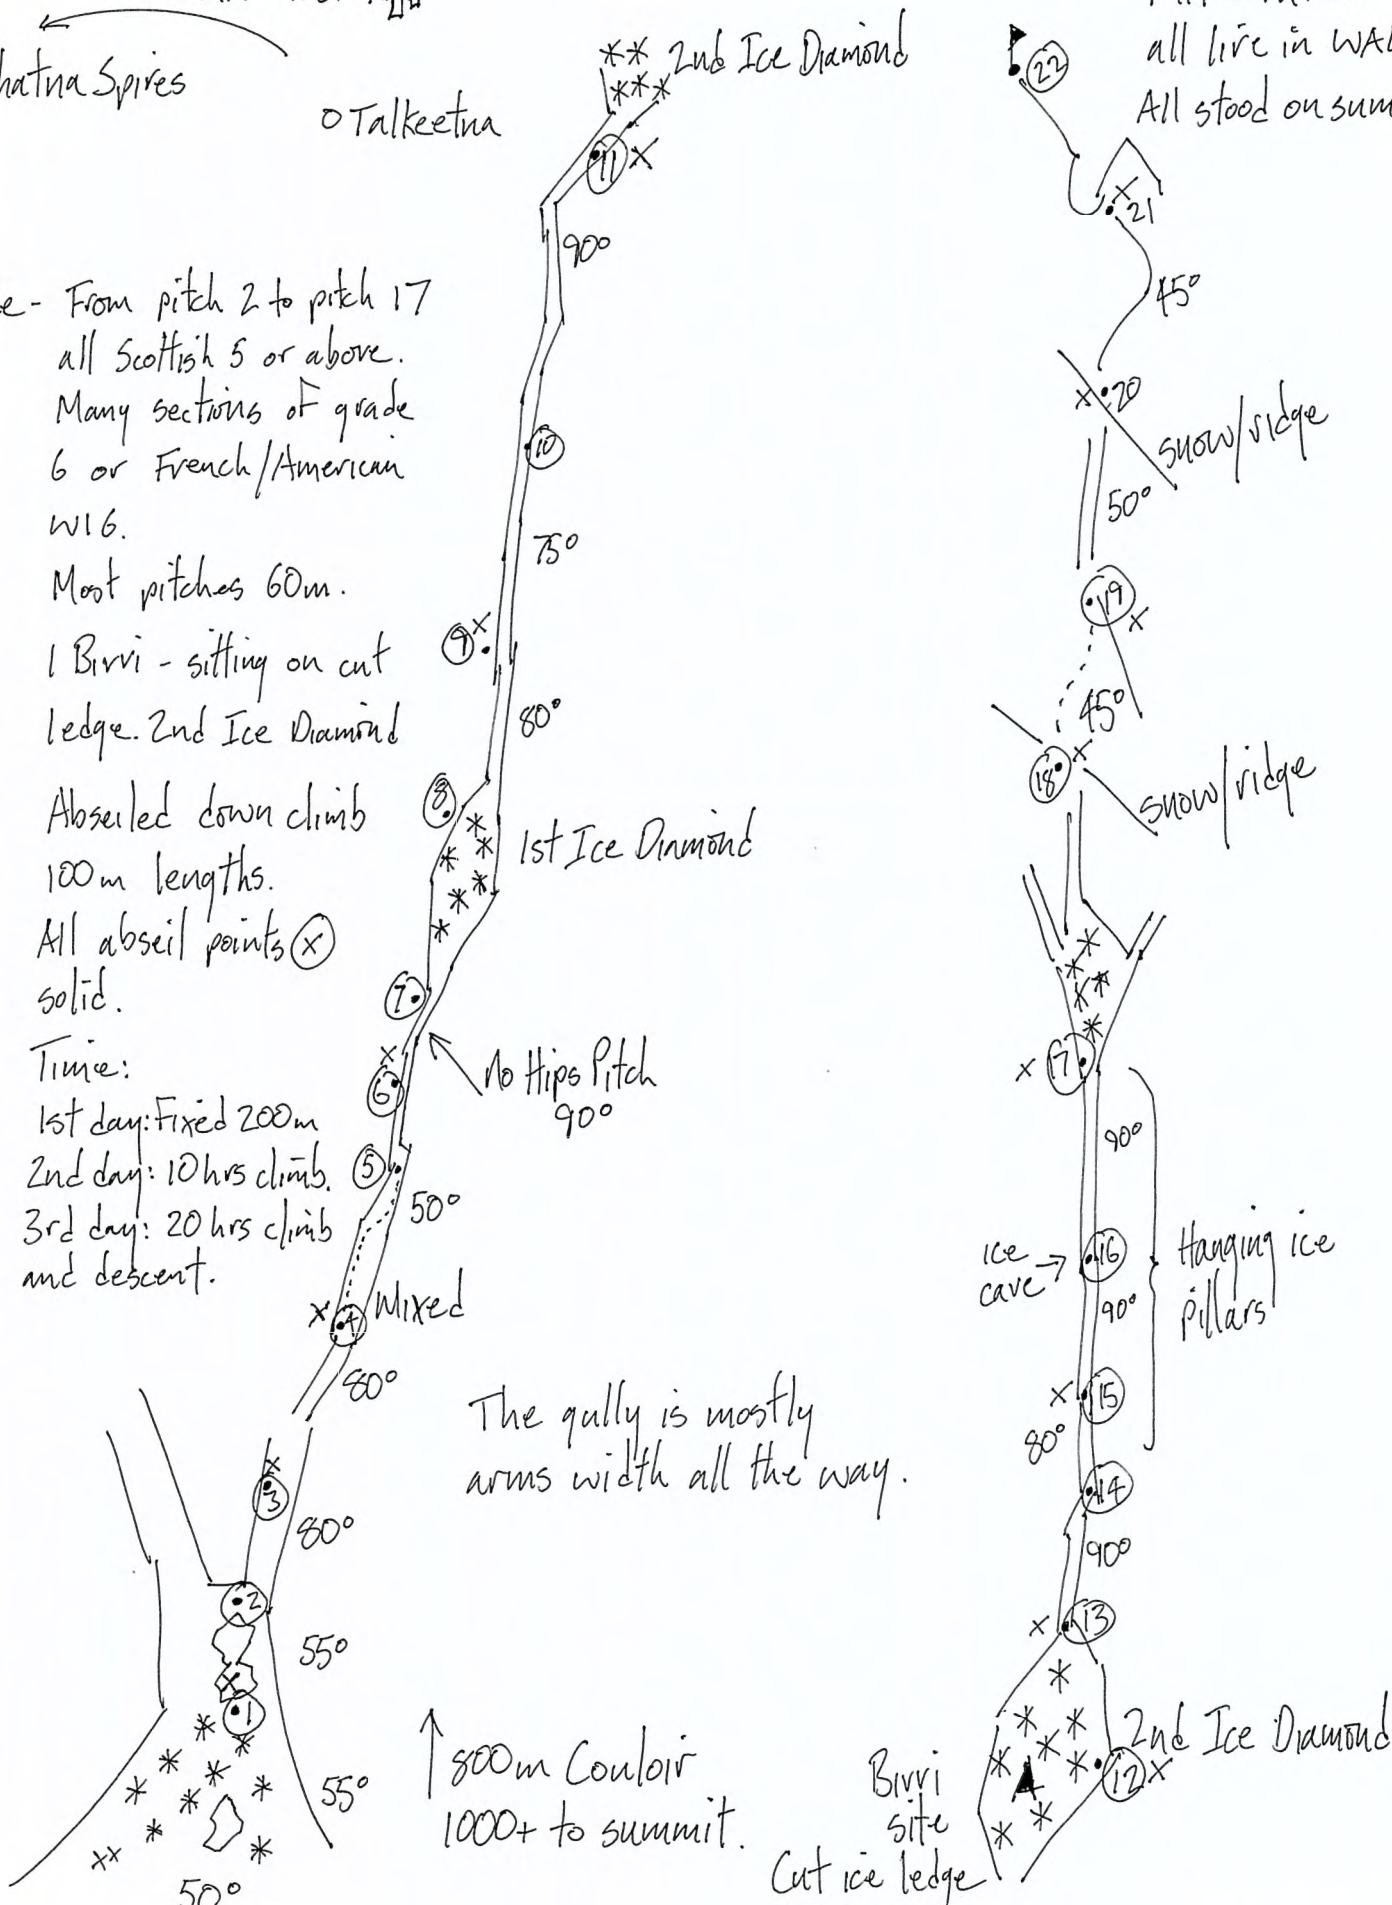 hatna Spires
o Talkeetna
2nd Ice Diamond
11 X
90°
e - From pitch 2 to pitch 17
all Scottish 5 or above.
Many sections of grade
6 or French/American
WI6.
Most pitches 60m.
1 Bivvi - sitting on cut
ledge. 2nd Ice Diamond
Abseiled down climb
100m lengths.
All abseil points X
solid.
Time:
1st day: Fixed 200m
2nd day: 10 hrs climb.
3rd day: 20 hrs climb
and descent.
10
75°
9 X
80°
8
1st Ice Diamond
7
X
6
No Hips Pitch
90°
5
50°
X 4 Mixed
80°
The gully is mostly
arms width all the way.
X
3
80°
2
55°
X
1
55°
50°
800m Couloir
1000+ to summit.
all live in WAL
All stood on sum
22
X
21
45°
X 20
snow/ridge
50°
19
X
45°
18 X
snow/ridge
X 17
90°
ice
cave
16
Hanging ice
pillars
90°
X 15
80°
14
90°
X 13
2nd Ice Diamond
12 X
Bivvi
site
Cut ice ledge